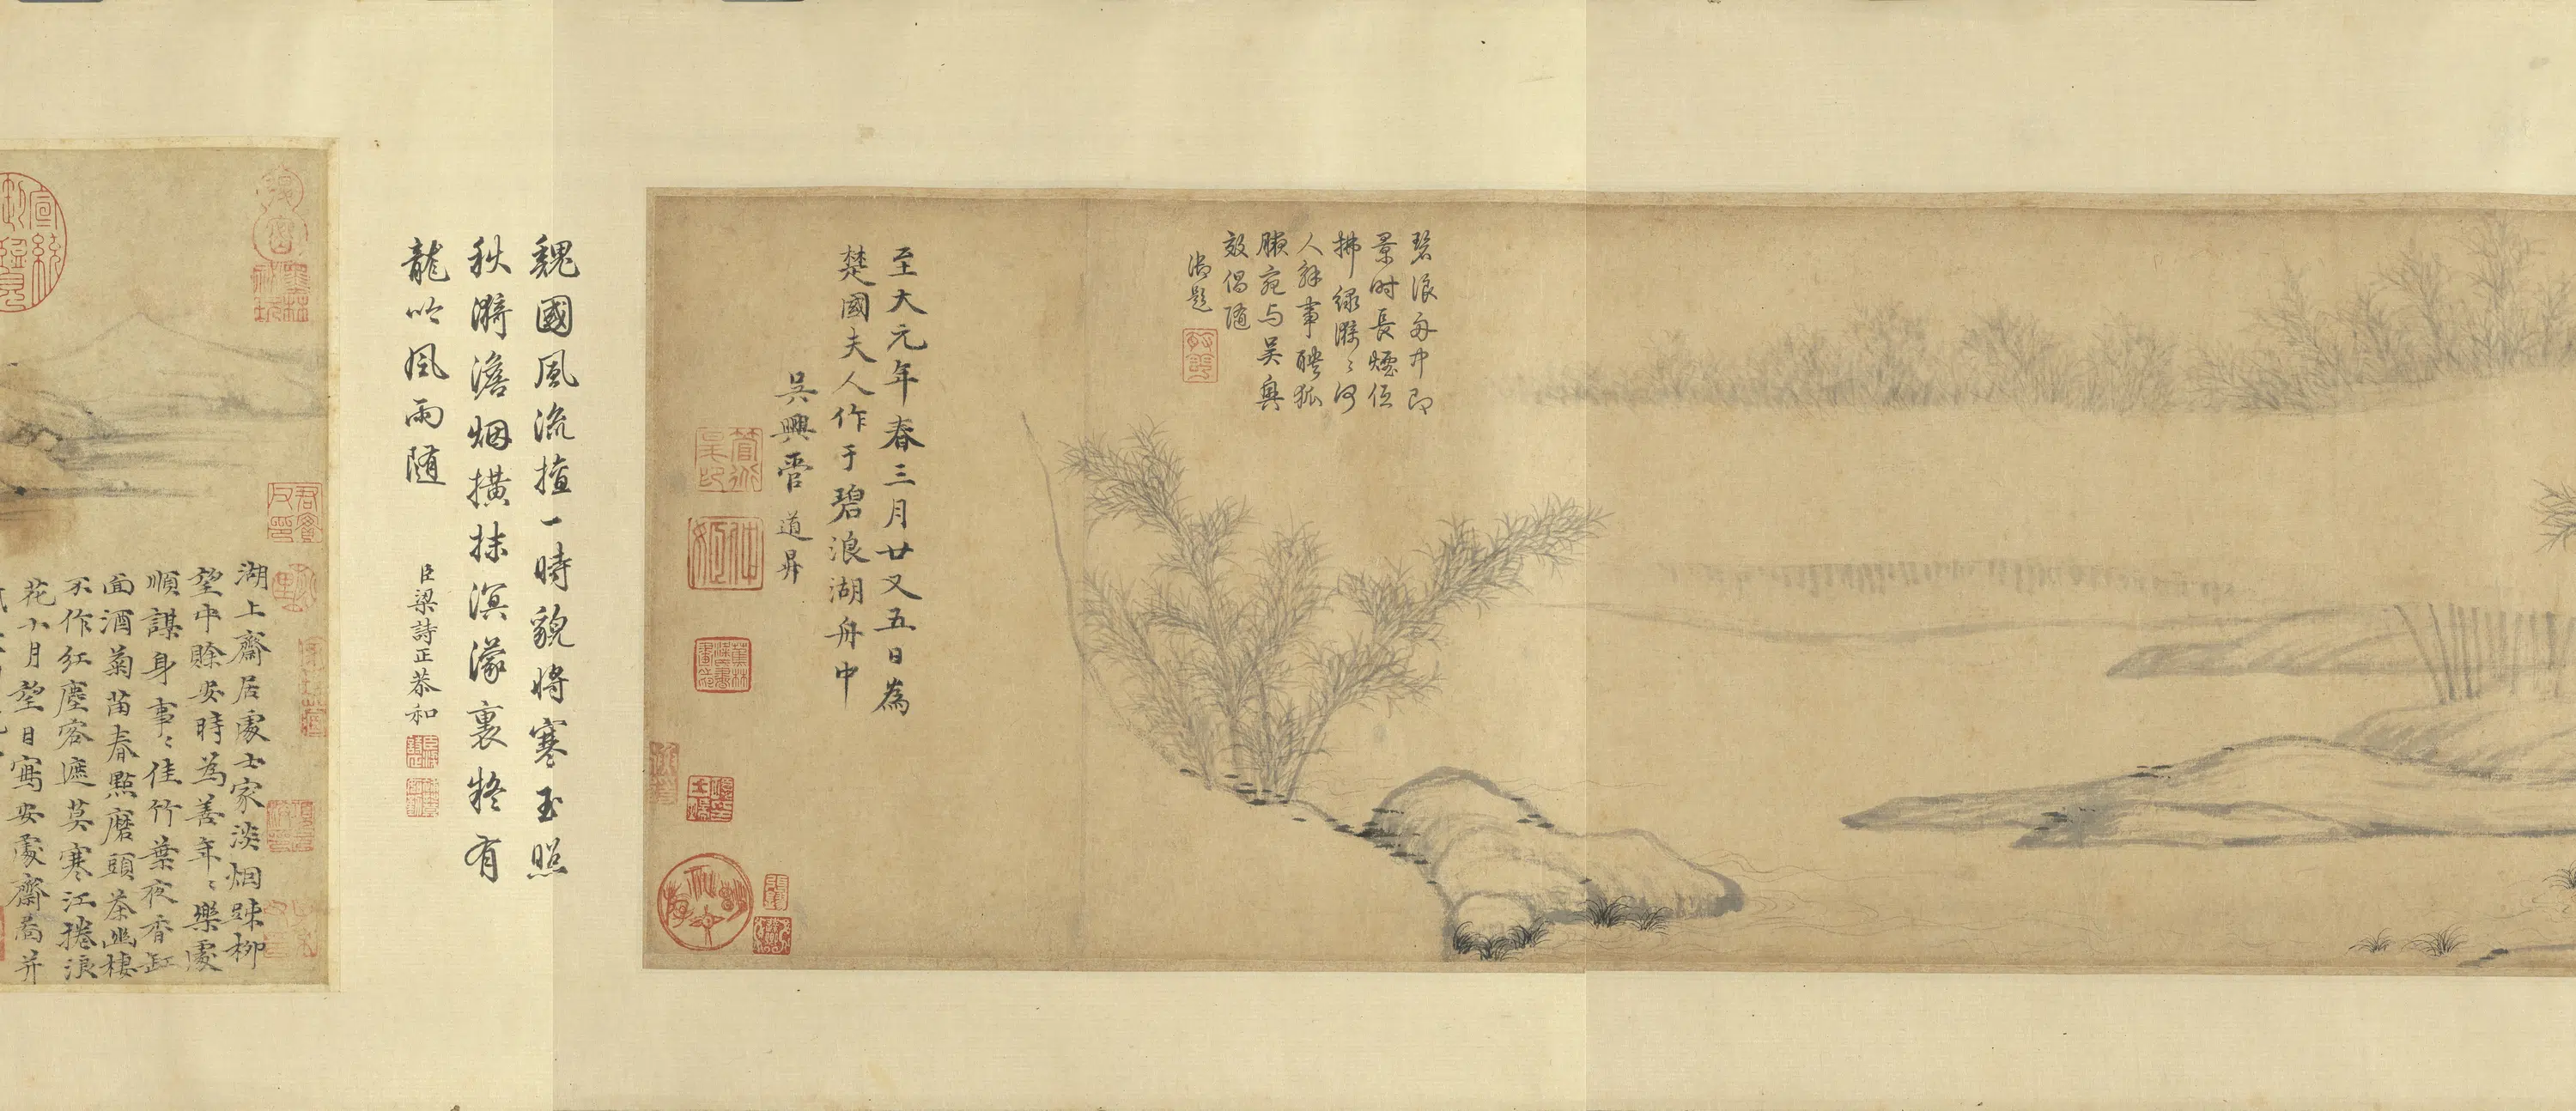 碧浪舟中即
景時長煙低
拂綠漪漪何
人解事聘狐
腋宛与吴興
效倡隨
御題
至大元年春三月廿又五日為
楚國夫人作于碧浪湖舟中
吳興管道昇
魏國風流擅一時貌將寒玉照
秋漪澹烟橫抹溟濛裏猶有
龍吟風雨随
臣梁詩正恭和
湖上齋居處士家淡烟踈柳
望中賒安時為善年〻樂處
順謀身事〻佳竹葉夜香缸
面酒菊苗春點磨頭茶幽棲
不作紅塵客遮莫寒江捲浪
花小月望日寫安處齋啚并